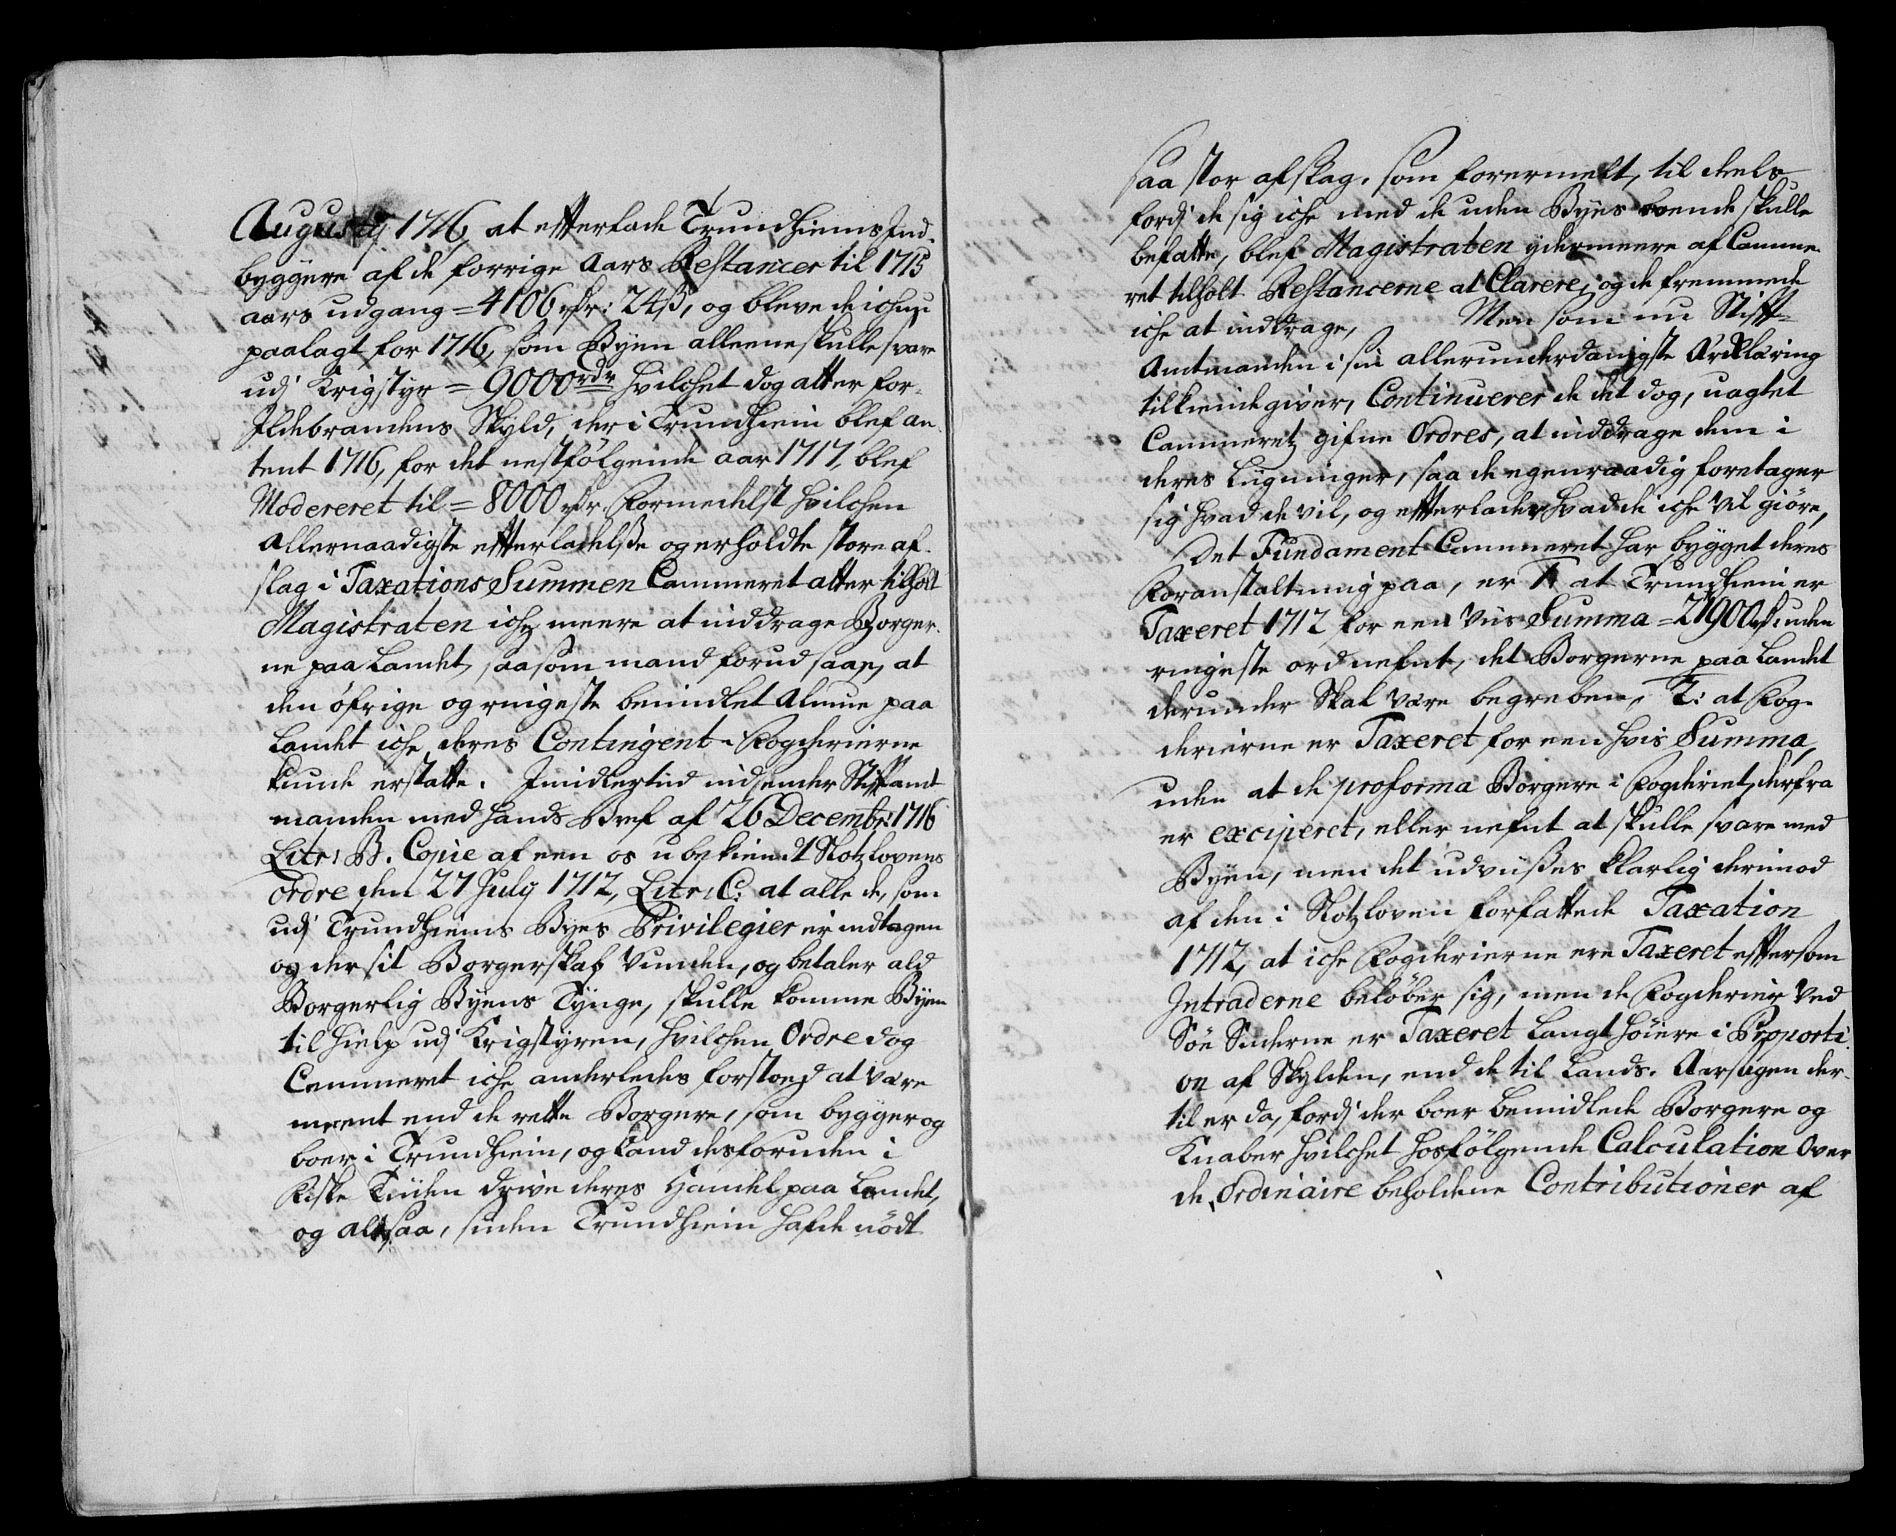 Augusty 1716, at efterlade Trundhiems Ind-
byggere af de forrige Aars Restancer til 1715
aars udgang = 4106 rdr: 24ß, og bleve de ichun
paalagt for 1716, som Byen alleene skulle svare
udj Krigstyr = 9000 rdr hvilchet dog atter for-
Ildebrandens Skyld, der i Trundhiem blef an-
tent 1716, for det nestfølgende aar 1717, blef
Modereret til = 8000 rdr. Formedelst hvilchen
allernaadigste efterladelße og erholdte store af-
slag i Taxations Summen Cammeret atter tilholt
Magistraten iche meere at inddrage Borger-
ne paa Landet, saasom mand forud saae, at
den øfrige og ringeste bemidlet Almue paa
Landet iche deres Contingent Fogderierne
kunde erstatte. Imidlertid indsender Stiftamt
manden med hands Bref af 26 Decembr: 1716
Litr: B. Copie af een os ubekiendt Slotzlovens
Ordre den 27 July 1712, Litr: C: at alle de, som
udj Trundhiems Byes Privilegier er indtagen
og der sit Borgerskab vunden, og betaler ald
Borgerlig Byens Tynge, skulle komme Byen
til hielp udj Krigstyren, hvilchen Ordre dog
Cammeret iche anderledes forstoed at være
meent end de rette Borgere, som bygger og
boer i Trundhiem, og land desforuden i
Fiske Tiiden drive deres Handel paa Landet,
og altsaa, siden Trundhiem hafde nødt
saa stor afslag, som formelt, til deels
fordj de sig iche med de uden Byes boende skulle
befatte, blef Magistraten ydermeere af Camme-
ret tilholt Restancerne at Clarere, og de fremmede
iche at inddrage, Men som nu Stift-
Amtmanden i sin allerunderdanigste Ærklæring
tilkiendegiver, Continuerer de det dog, uagtet
Cammeretz gifne Ordres, at inddrage dem i
deres Ligninger, saa de egenraadig foretager
sig hvad de vil, og efterlader hvad de iche vil giøre,
Det Fundament Cammeret har bygget deres
Foranstaltning paa, er 1: at Trundhiem er
Taxeret 1712 for een viis Summa = 21900 rd: uden
ringeste ord nefnt, det Borgerne paa Landet
derunder Skal være begreben, 2: at Fog-
derierne er Taxeret for een hvis Summa,
uden at de proforma Borgere i Fogderiet, derfra
er exciperet, eller nefnt at skulle svare med
Byen, men det udviißes klarlig derimod
af den i Slotzloven forfattede Taxation
1712, at iche Fogderierne ere Taxeret eftersom
Intraderne beløber sig, men de Fogderier ved
Søe Siderne er Taxeret langt høiere i Proporti-
on af Skylden, end de til Lands. Aarsagen der-
til er da, fordj der boer bemidlede Borgere og
Knaber hvilchet hosfølgende Calculation over
de Ordinaire beholdene Contributioner af